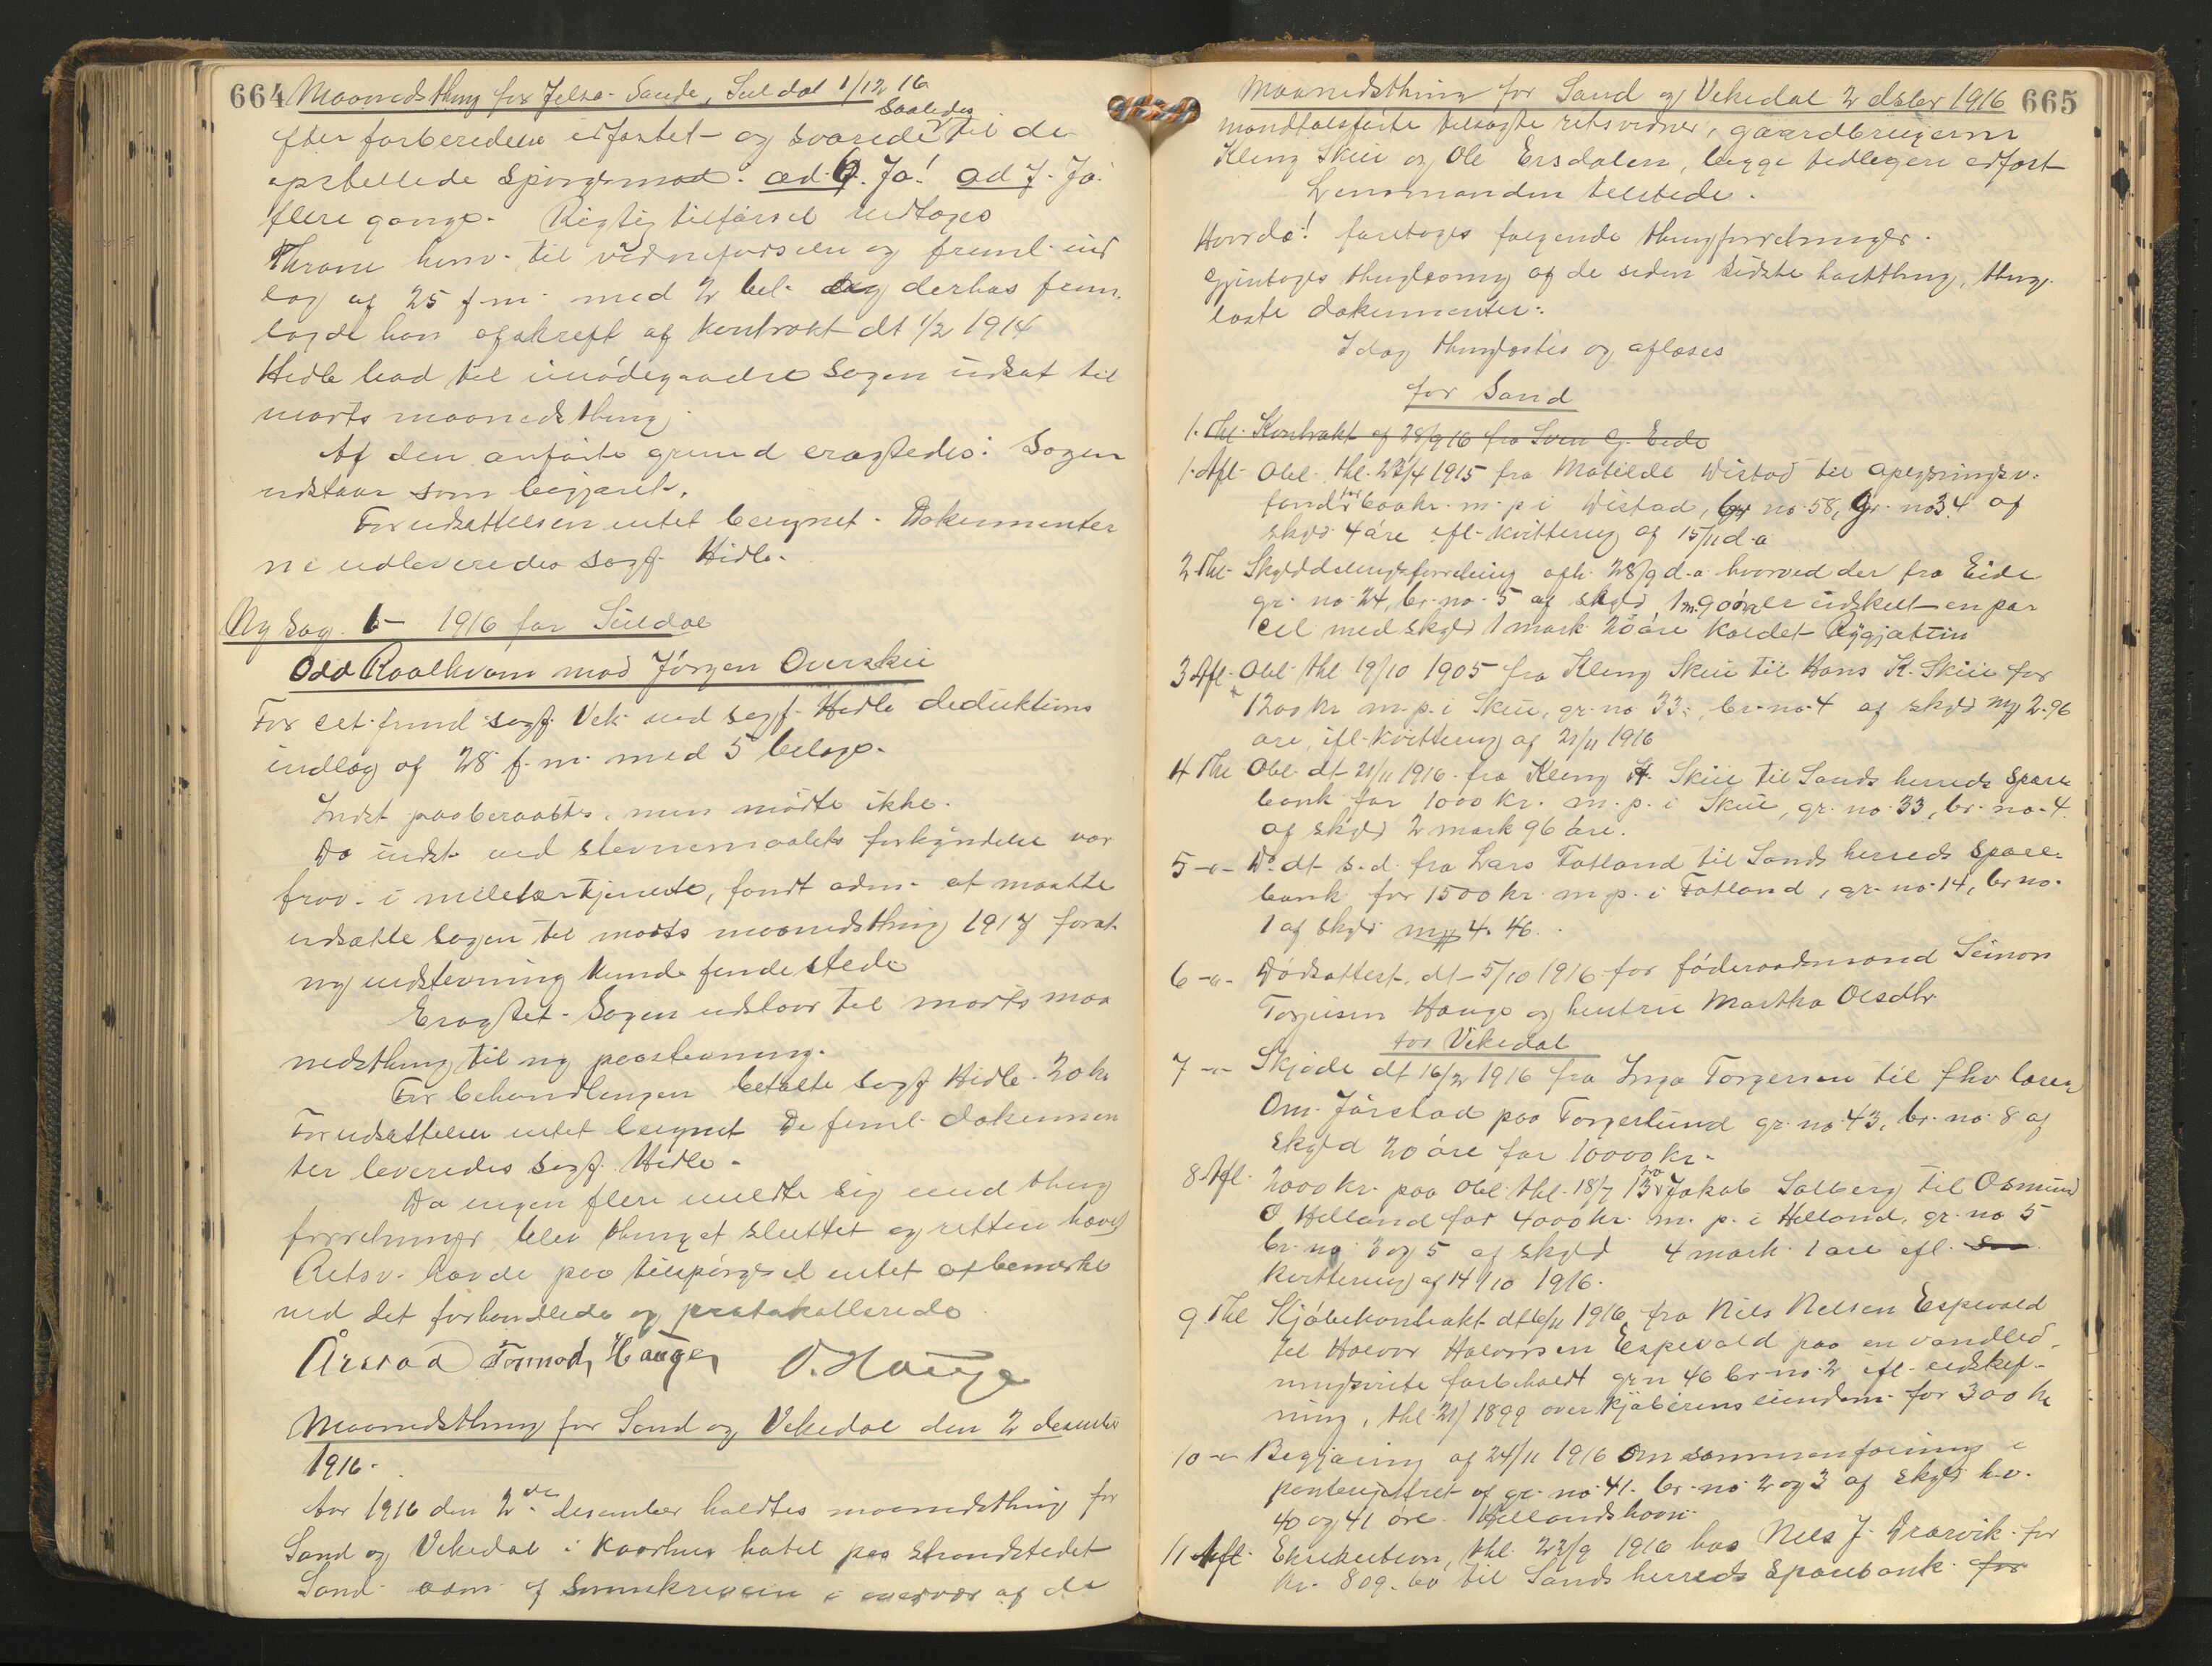 664 Maanedsthing for Jelsa- Saude, Suldal 1/12 16.
efter forberedelse edfæstet- og svarede saaledes til de
opstillede spørgsmaal. ad. 6. Ja! ad 7. Ja!
flere gange. Rigtig tilførsel vedtoges
Thrane henv. til vidneførselen og freml. ind
læg af 25 f.m. med 2 bil. og derhos frem
lagde han afskrift af kontrakt dt 1/2 1914
Hidle bad til imødegaaelse sagen udsat til
marts maanedsthing.
Af den anførte grund eragtedes: Sagen
udstaar som begjæret.
For udsættelsen intet beregnet. Dokumenter
ne udleveredes sagf. Hidle.
Ny sag. 6- 1916 for Suldal
Odd Raalkvam mod Jørgen Overskei
For cit. fremd. sagf. Vek ved sagf. Hidle deduktions
indlæg af 28 f.m. med 5 bilage.
Indst paaberaabtes, men mødte ikke.
Da indst. ved stevnemaalets forkyndelse var
frav. i militærtjeneste, fandt adm. at maatte
udsætte sagen til marts maanedsthing 1917 forat
ny indstevning kunde finde sted
Eragtet- Sagen udstaar til marts maa
nedsthing til ny paastevning.
For behandlingen betalte sagf Hidle 20 kr.
For udsættelsen intet beregnet De freml. dokumen
ter leveredes sagf. Hidle.
Da ingen flere meldte sig med thing
forretninger, blev thinget sluttet og retten hævet
Retsv. havde paa tilspørgsel intet at bemerke
ved det forhandlede og protokollerede.
Årstad Tormod, Hauge, O. Hauge
Maanedsthing for Sand og Vikedal den 2 desember
1916.
Aar 1916 den 2den desember holdtes maanedsthing for
Sand og Vikedal i Kaarhus hotel paa strandstedet
Sand adm. af sorenskriveren i overvær af de
Maanedsthing for Sand og Vikedal 2 dsbr 1916 665
mandtalsførte tilsagte retsvidner, gaardbrugerne
Kleng Skeie og Ole Ersdalen, begge tidligere edfæst
Lensmanden tilstede.
Hvorda! foretoges følgende thingforretninger.
Gjentoges thinglæsning af de siden sidste høstthing, thing
læste dokumenter.
Idag thinglæstes og aflæses
for Sand
1. Thl. Kontrakt af 28/9 16 fra Sven G. Eide
1. Afl. Obl. thl. 23/4 1915 fra Matilde Vistad til oplysningsv.
fond for 600 kr. m. p i Vistad, br no. 58, gr. no 34 af
skyld 4 øre ifl. kvittering af 15/11 d.a
2 Thl. Skylddelingsforretning afh. 28/9 d.a hvorved der fra Eide
gr. no. 24, br. no. 5 af skyld 1 m. 90 øre er udskilt en par
cel med skyld 1 mark 20 øre kaldet Rygjatun
3 Afl. Obl. thl 19/10 1905 fra Kleng Skeie til Hans K. Skeie for
1200 kr m. p. i Skeie, gr. no 33, br. no. 4 af skyld mk 2.96
øre, ifl. kvittering af 21/11 1916
4 Thl Obl. dt 21/11 1916 fra Kleng H. Skeie til Sands herreds spare
bank for 1000 kr. m. p. i Skeie, gr. no. 33, br. no. 4.
af skyld 2 mark 96 øre.
5 -"- Do dt s. d. fra Lars Fatland til Sands herreds spare
bank for 1500 kr. m. p. i Fatland, gr. no. 14, br no.
1 af skyld mk 4. 46.
6 -"- Dødsattest dt 5/10 1916 for føderaadsmand Simon
Torjusen Hauge og hustru Martha Olsdtr
for Vikedal
7 -"- Skjøde dt 16/2 1916 fra Inga Torgersen til fhv lærer
Om. Jørstad paa Torgerlund gr. no. 43, br. no. 8 af
skyld 20 øre for 10000 kr.
8 Afl. 2000 kr. paa obl. thl. 18/7 13 fra Jakob Salberg til Osmund
O Helland for 4000 kr. m. p. i Helland, gr. no 5
br. no. 3 og 5 af skyld 4 mark 1 øre ifl.
kvittering af 14/10 1916.
9 Thl Kjøbekontrakt dt 6/11 1916 fra Nils Nilsen Espevold
til Halvor Halvorsen Espevold paa en vandled
ningsrite forbeholdt gr n 46 br. no. 2 ifl. udskif-
ning, thl. 21/ 1899 over kjøberens eiendom for 300 kr
10 -"- Begjæring af 24/11 1916 om sammenføining i
panteregistret af gr. no. 41. br. no. 2 og 3 af skyld h.v.
40 og 41 øre
11 Afl. Eksekution, thl. 23/9 1916 hos Nils J. Drarvik for
kr. 809. 60 til Sands herreds sparebank for